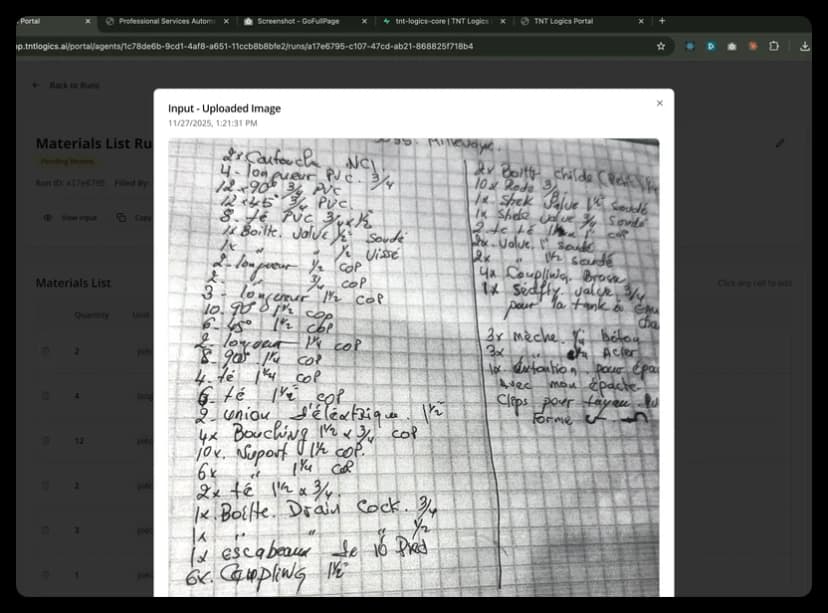 Portal
Professional Services Autom
Screenshot - GoFullPage
tnt-logics-core | TNT Logics
TNT Logics Portal
p.tntlogics.ai/portal/agents/1c78de6b-9cd1-4af8-a651-11ccb8b8bfe2/runs/a17e6795-c107-47cd-ab21-868825f718b4
Back to Runs
Materials List Ru
Pending Review
Run ID: a17e6795 Filled By:
View Input
Copy
Materials List
Click any cell to edit
Quantity Unit
2
4
12
2
3
1
Input - Uploaded Image
11/27/2025, 1:21:31 PM
2x Cartouche NCL
4 - longueur PVC. 3/4
12 x 90° 3/4 PVC
12 x 45° 3/4 PVC.
8 - té PVC 3/4 x 1/2
1x Boitte. Valve 1/2 Soudé
1x " " 1/2 Vissé
2 - longueur 1/2 COP
2 - " 3/4 COP
3 - longueur 1 1/2 COP
10. 90° 1 1/2 COP
6 - 45° 1 1/2 COP
2 - longueur 1 1/4 COP
8 - 90° 1 1/4 COP
4 - té 1 1/4 COP
6 - té 1 1/2 COP
2 - union d'éléctrique. 1 1/2
4x Bouching 1 1/2 x 3/4 COP
10x. Suport 1 1/2 COP.
6x " 1 1/4 COP
2x té 1 1/2 x 3/4.
1x. Boitte. Drain Cock. 3/4
1x " " " 1/2
1x escabeaux de 16 Pied
6x. Coupling 1 1/2
2x Boitte childe
10x Rods 3/
1x Shek Valve 1 1/2 soudé
1x Sheke valve 3/4 Soudé
2 té té 1" COP
2x. Valve. 1" soudé
2x " 1 1/2 soudé
4x Coupling. Brass
1x Sedfty. valve. 3/4
pour la tank à
3x mèche. béton
3x " Acier
1x éxtantion pour
Avec mon épacte
Clips pour tuyau
Forme